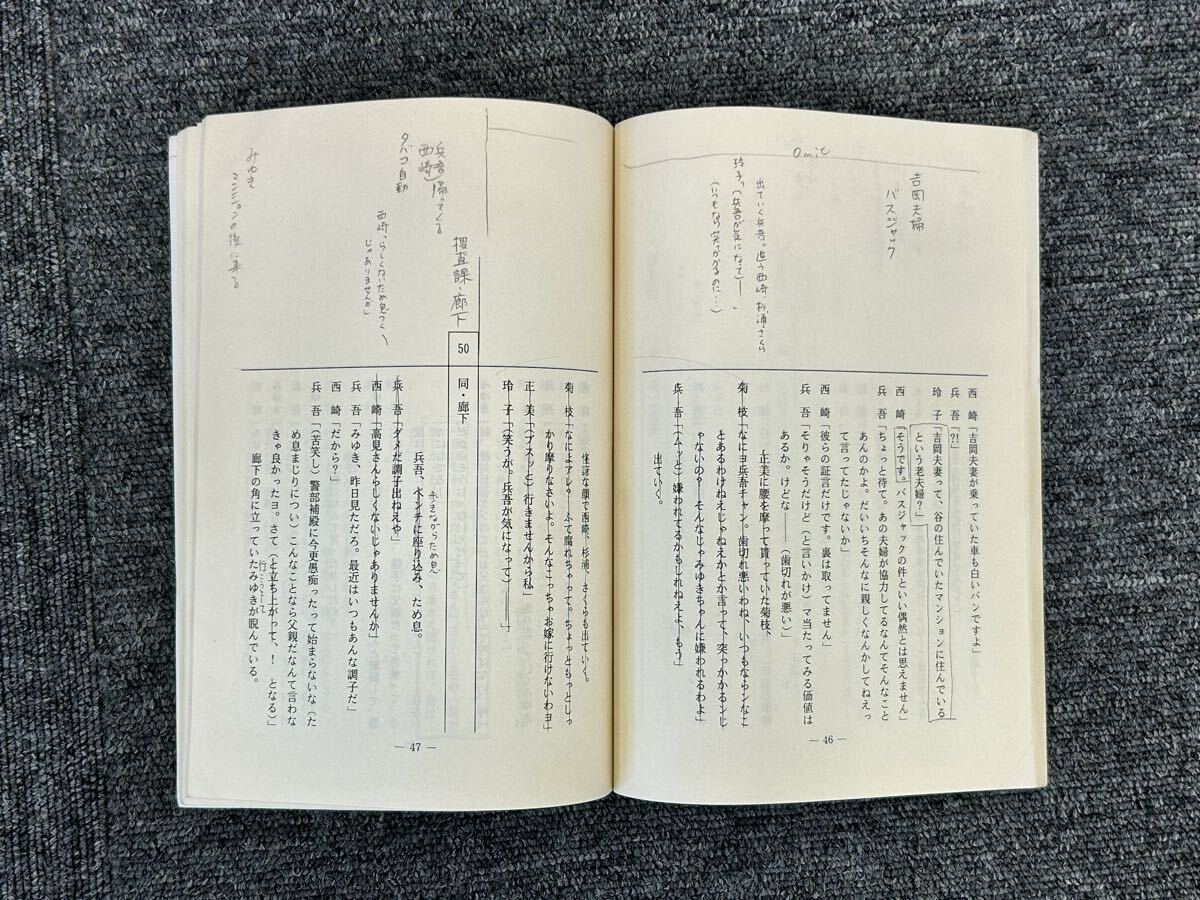 Omit
吉岡夫婦
バスジャック
出ていく兵吾。追う西崎、杉浦、さくら
玲子「(兵吾が気になって)──」
(いつもなら突っかかるのに…)
西　崎「吉岡夫妻が乗っていた車も白いバンですよ」
兵　吾「?!」
玲　子「吉岡夫妻って、谷の住んでいたマンションに住んでいる
という老夫婦?」
西　崎「そうです。バスジャックの件といい偶然とは思えません」
兵　吾「ちょっと待て。あの夫婦が協力してるなんてそんなこと
あんのかよ。だいいちそんなに親しくなんかしてねえっ
て言ってたじゃないか」
西　崎「彼らの証言だけです。裏は取ってません」
兵　吾「そりゃそうだけど(と言いかけ)マ当たってみる価値は
あるか。けどな──(歯切れが悪い)」
正美に腰を摩って貰っていた菊枝、
菊　枝「なにヨ兵吾チャン。歯切れ悪いわね、いつもならンなこ
とあるわけねえじゃねえかとか言って、突っかかるンじ
ゃないの?　そんなじゃみゆきちゃんに嫌われるわよ」
兵　吾「(ムッと)嫌われてるかもしれねえよ、もう」
出ていく。
― 46 ―
兵吾
西崎
帰ってくる
タバコ自動
捜査課・廊下
西崎、らしくないため息つく
じゃありませんか」
みゆき
マンションの後に来る
怪訝な顔で西崎、杉浦、さくらも出ていく。
菊　枝「なによアレ?　ふて腐れちゃって。ちょっともっとしっ
かり摩りなさいよ。そんなこっちゃお嫁に行けないわヨ」
正　美「(ブスッと)行きませんから私」
玲　子「(笑うが。兵吾が気になって)──」
50　同・廊下
兵吾、ベンチに座り込み、ため息。
歩きながらため息
兵　吾「ダメだ調子出ねえや」
西　崎「高見さんらしくないじゃありませんか」
兵　吾「みゆき、昨日見ただろ。最近はいつもあんな調子だ」
西　崎「だから?」
兵　吾「(苦笑し)警部補殿に今更愚痴ったって始まらないな(た
め息まじりについ)こんなことなら父親だなんて言わな
きゃ良かったヨ。さて(と立ち上がって、!　となる)」
行こうとして
廊下の角に立っていたみゆきが睨んでいる。
― 47 ―